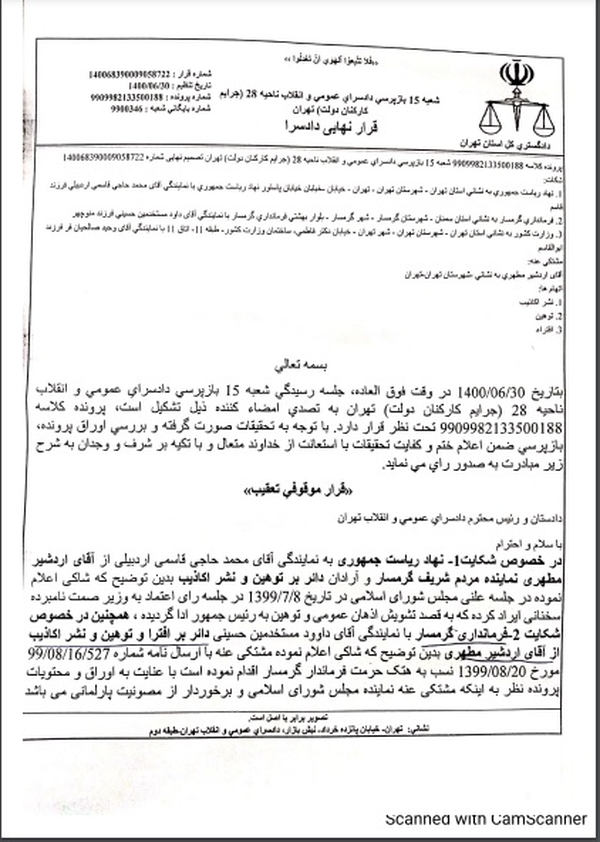 «فلا تتبعوا الهوي ان تعدلوا»
شماره قرار : 140068390009058722
تاریخ تنظیم : 1400/06/30
شماره پرونده : 9909982133500188
شماره بایگانی شعبه : 9900346
شعبه 15 بازپرسي دادسراي عمومي و انقلاب ناحیه 28 (جرایم
کارکنان دولت) تهران
قرار نهایی دادسرا
دادگستري کل استان تهران
پرونده کلاسه 9909982133500188 شعبه 15 بازپرسي دادسراي عمومي و انقلاب ناحیه 28 (جرایم کارکنان دولت) تهران تصمیم نهایی شماره 140068390009058722
شکات:
1. نهاد ریاست جمهوری به نشانی استان تهران - شهرستان تهران - تهران - خیابان -خیابان خیابان پاستور نهاد ریاست جمهوري با نمایندگي آقای محمد حاجي قاسمي اردبیلي فرزند
قاسم
2. فرمانداري گرمسار به نشانی استان سمنان - شهرستان گرمسار - شهر گرمسار - بلوار بهشتي فرمانداري گرمسار با نمایندگي آقای داود مستخدمین حسیني فرزند منوچهر
3. وزارت کشور به نشانی استان تهران - شهرستان تهران - شهر تهران - خیابان دکتر فاطمي، ساختمان وزارت کشور- طبقه 11- اتاق 11 با نمایندگي آقای وحید صالحیان فر فرزند
ابوالقاسم
مشتکي عنه:
آقای اردشیر مطهري به نشاني -شهرستان تهران-تهران
اتهام ها:
1. نشر اکاذیب
2. توهین
3. افتراء
بسمه تعالي
بتاریخ 1400/06/30 در وقت فوق العاده، جلسه رسیدگي شعبه 15 بازپرسي دادسراي عمومي و انقلاب
ناحیه 28 (جرایم کارکنان دولت) تهران به تصدي امضاء کننده ذیل تشکیل است، پرونده کلاسه
9909982133500188 تحت نظر قرار دارد. با توجه به تحقیقات صورت گرفته و بررسي اوراق پرونده،
بازپرسي ضمن اعلام ختم و کفایت تحقیقات با استعانت از خداوند متعال و با تکیه بر شرف و وجدان به شرح
زیر مبادرت به صدور راي مي نماید.
«قرار موقوفي تعقیب»
دادستان و رئیس محترم دادسراي عمومي و انقلاب تهران
با سلام و احترام
در خصوص شکایت1- نهاد ریاست جمهوری به نمایندگي آقای محمد حاجي قاسمی اردبیلي از آقای اردشیر
مطهري نماینده مردم شریف گرمسار و آرادان دائر بر توهین و نشر اکاذیب بدین توضیح که شاکي اعلام
نموده در جلسه علني مجلس شورای اسلامی در تاریخ 1399/7/8 در جلسه رای اعتماد به وزیر صمت نامبرده
سخنانی ایراد کرده که به قصد تشویش اذهان عمومی و توهین به رئیس جمهور ادا گردیده ، همچنین در خصوص
شکایت 2-فرمانداری گرمسار با نمایندگي آقای داوود مستخدمین حسینی دائر بر افترا و توهین و نشر اکاذیب
از آقای اردشیر مطهری بدین توضیح که شاکي اعلام نموده مشتکي عنه با ارسال نامه شماره 99/08/16/527
مورخ 1399/08/20 نسب به هتک حرمت فرماندار گرمسار اقدام نموده است با عنایت به اوراق و محتویات
پرونده نظر به اینکه مشتکي عنه نماینده مجلس شورای اسلامی و برخوردار از مصونیت پارلمانی می باشد
تصویر برابر با اصل است.
نشاني: تهران- خیابان پانزده خرداد، نبش بازار، دادسراي عمومي و انقلاب تهران-طبقه دوم
Scanned with CamScanner